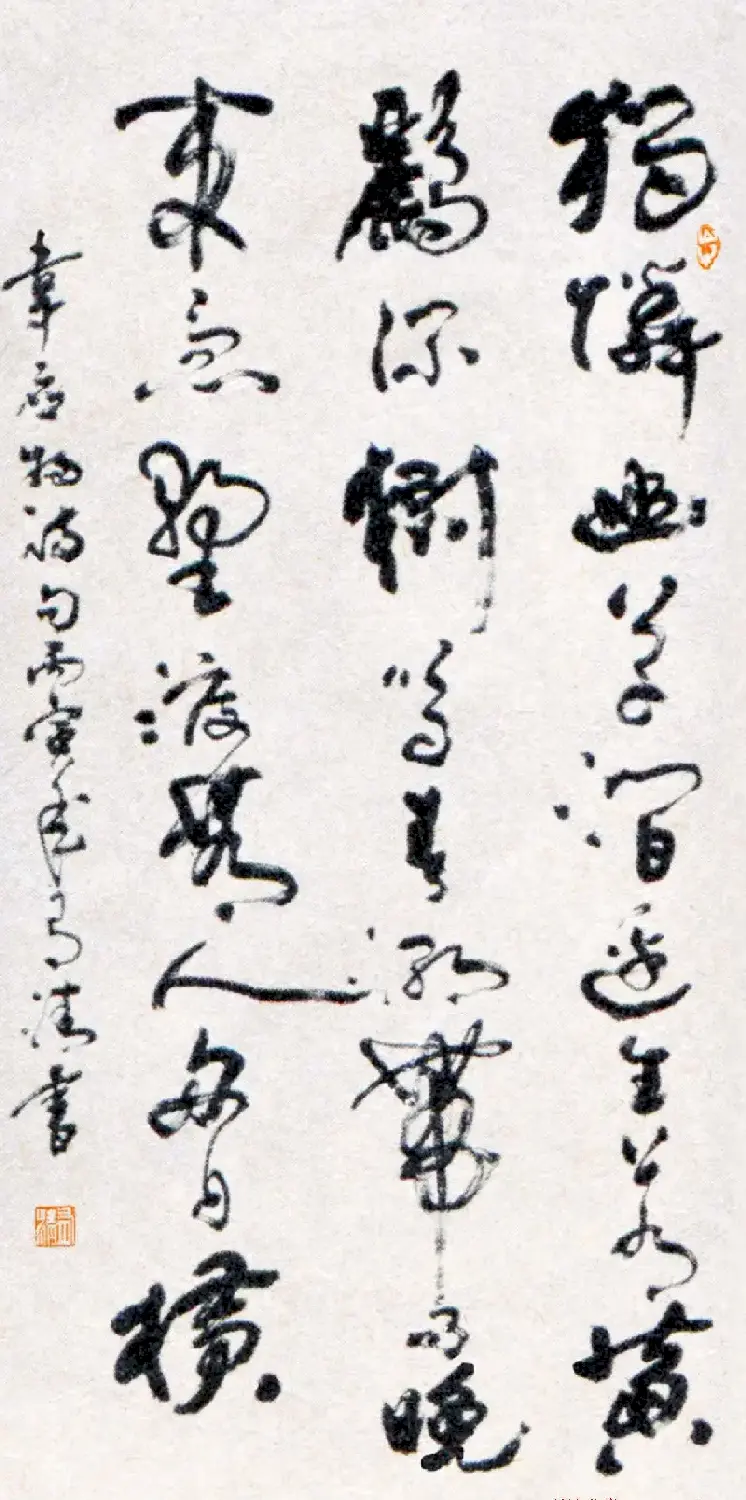 獨憐幽草澗邊生上有黃
鸝深樹鳴春潮帶雨晚
來急野渡無人舟自橫
韋应物詩句丙寅年書